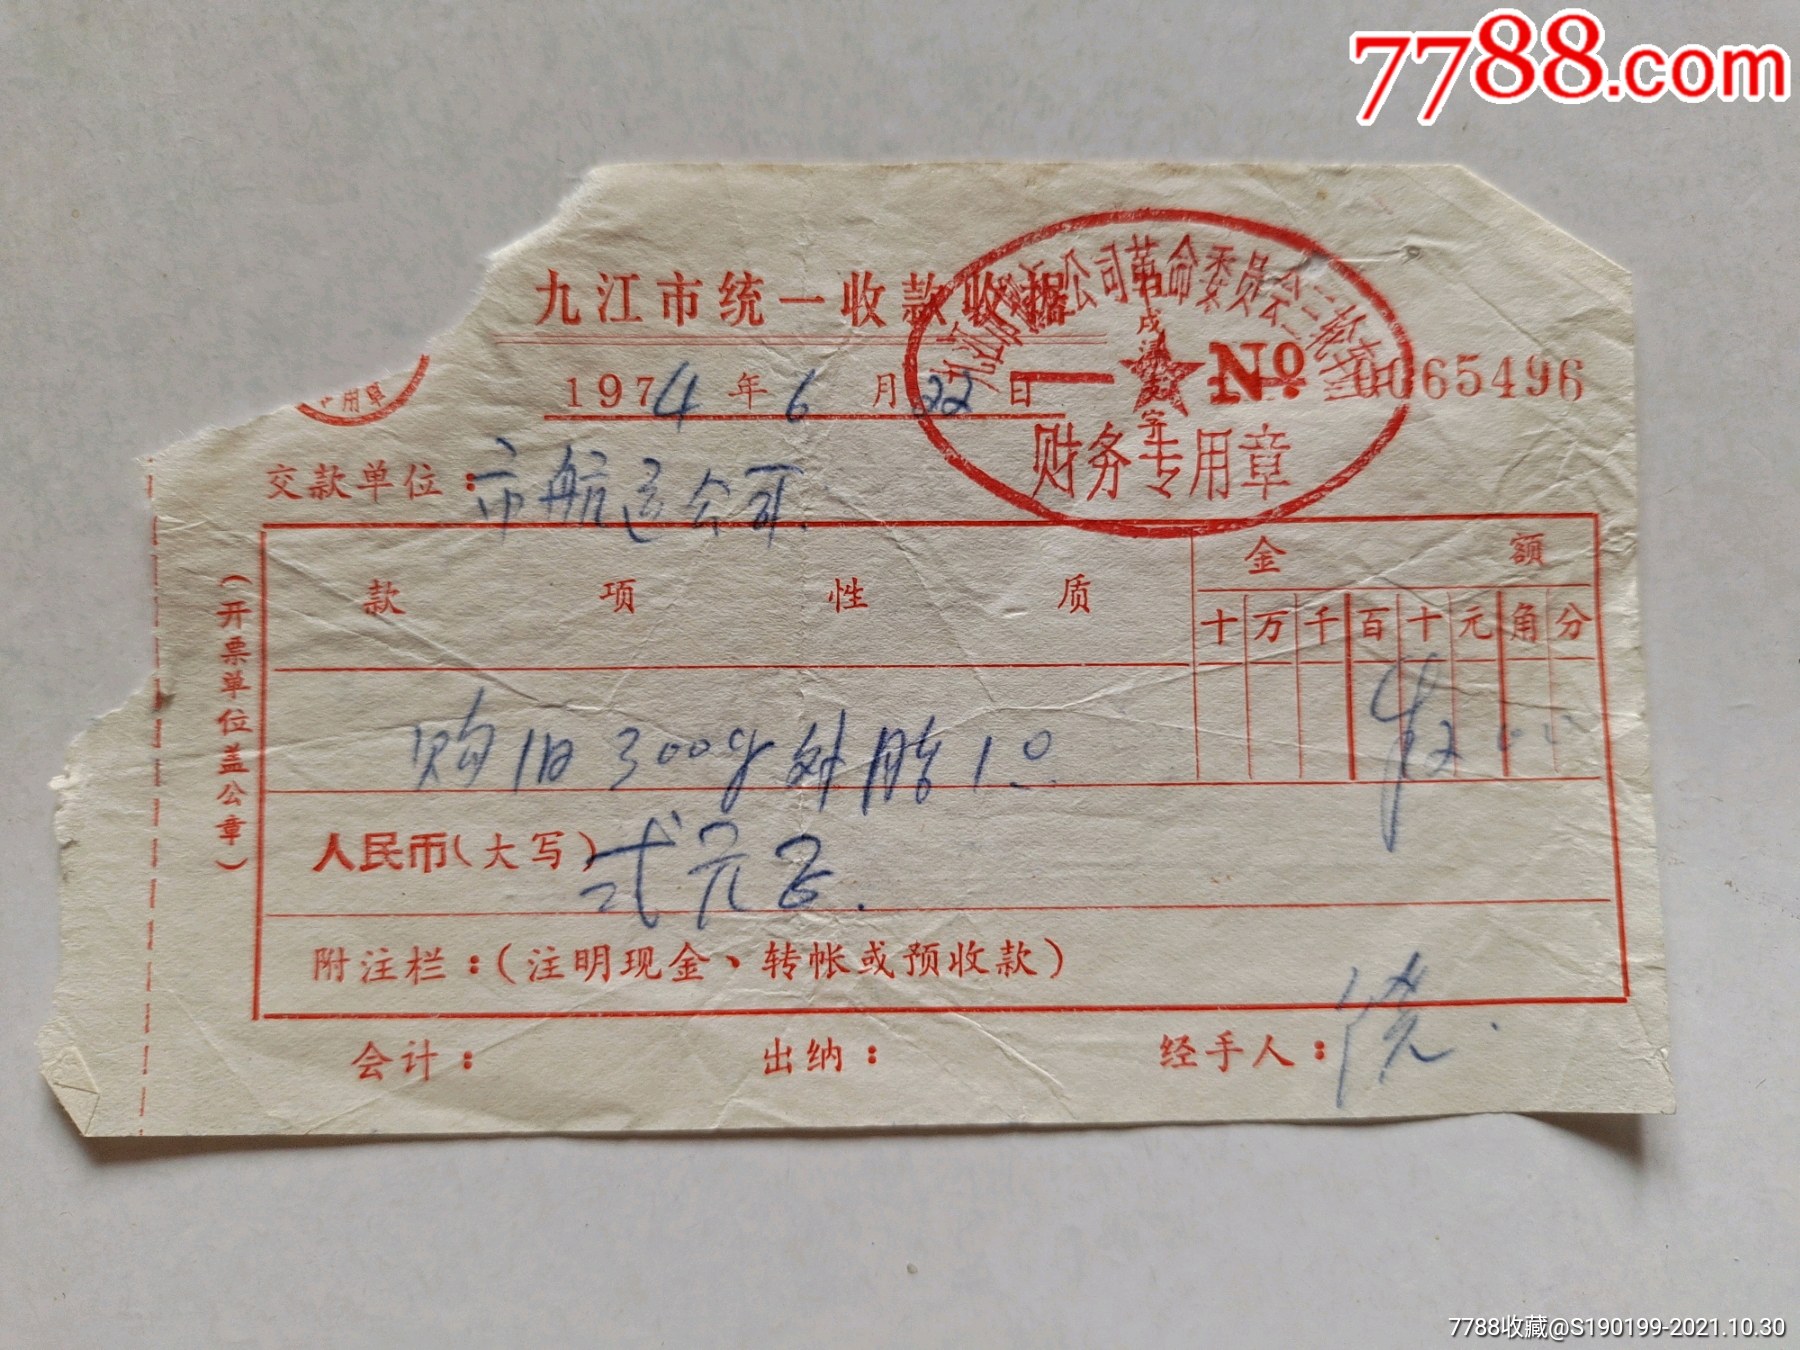 7788.com
九江市统一收款收据
公司革命委员会三轮
财务专用章
用章
1974年6月22日
No 0065496
交款单位：市航运公司.
(开票单位盖公章)
款项性质
金额
十万千百十元角分
购旧300 外胎1只
人民币(大写) 弍元正.
附注栏：(注明现金、转帐或预收款)
会计：
出纳：
经手人：饶.
7788收藏@S190199-2021.10.30